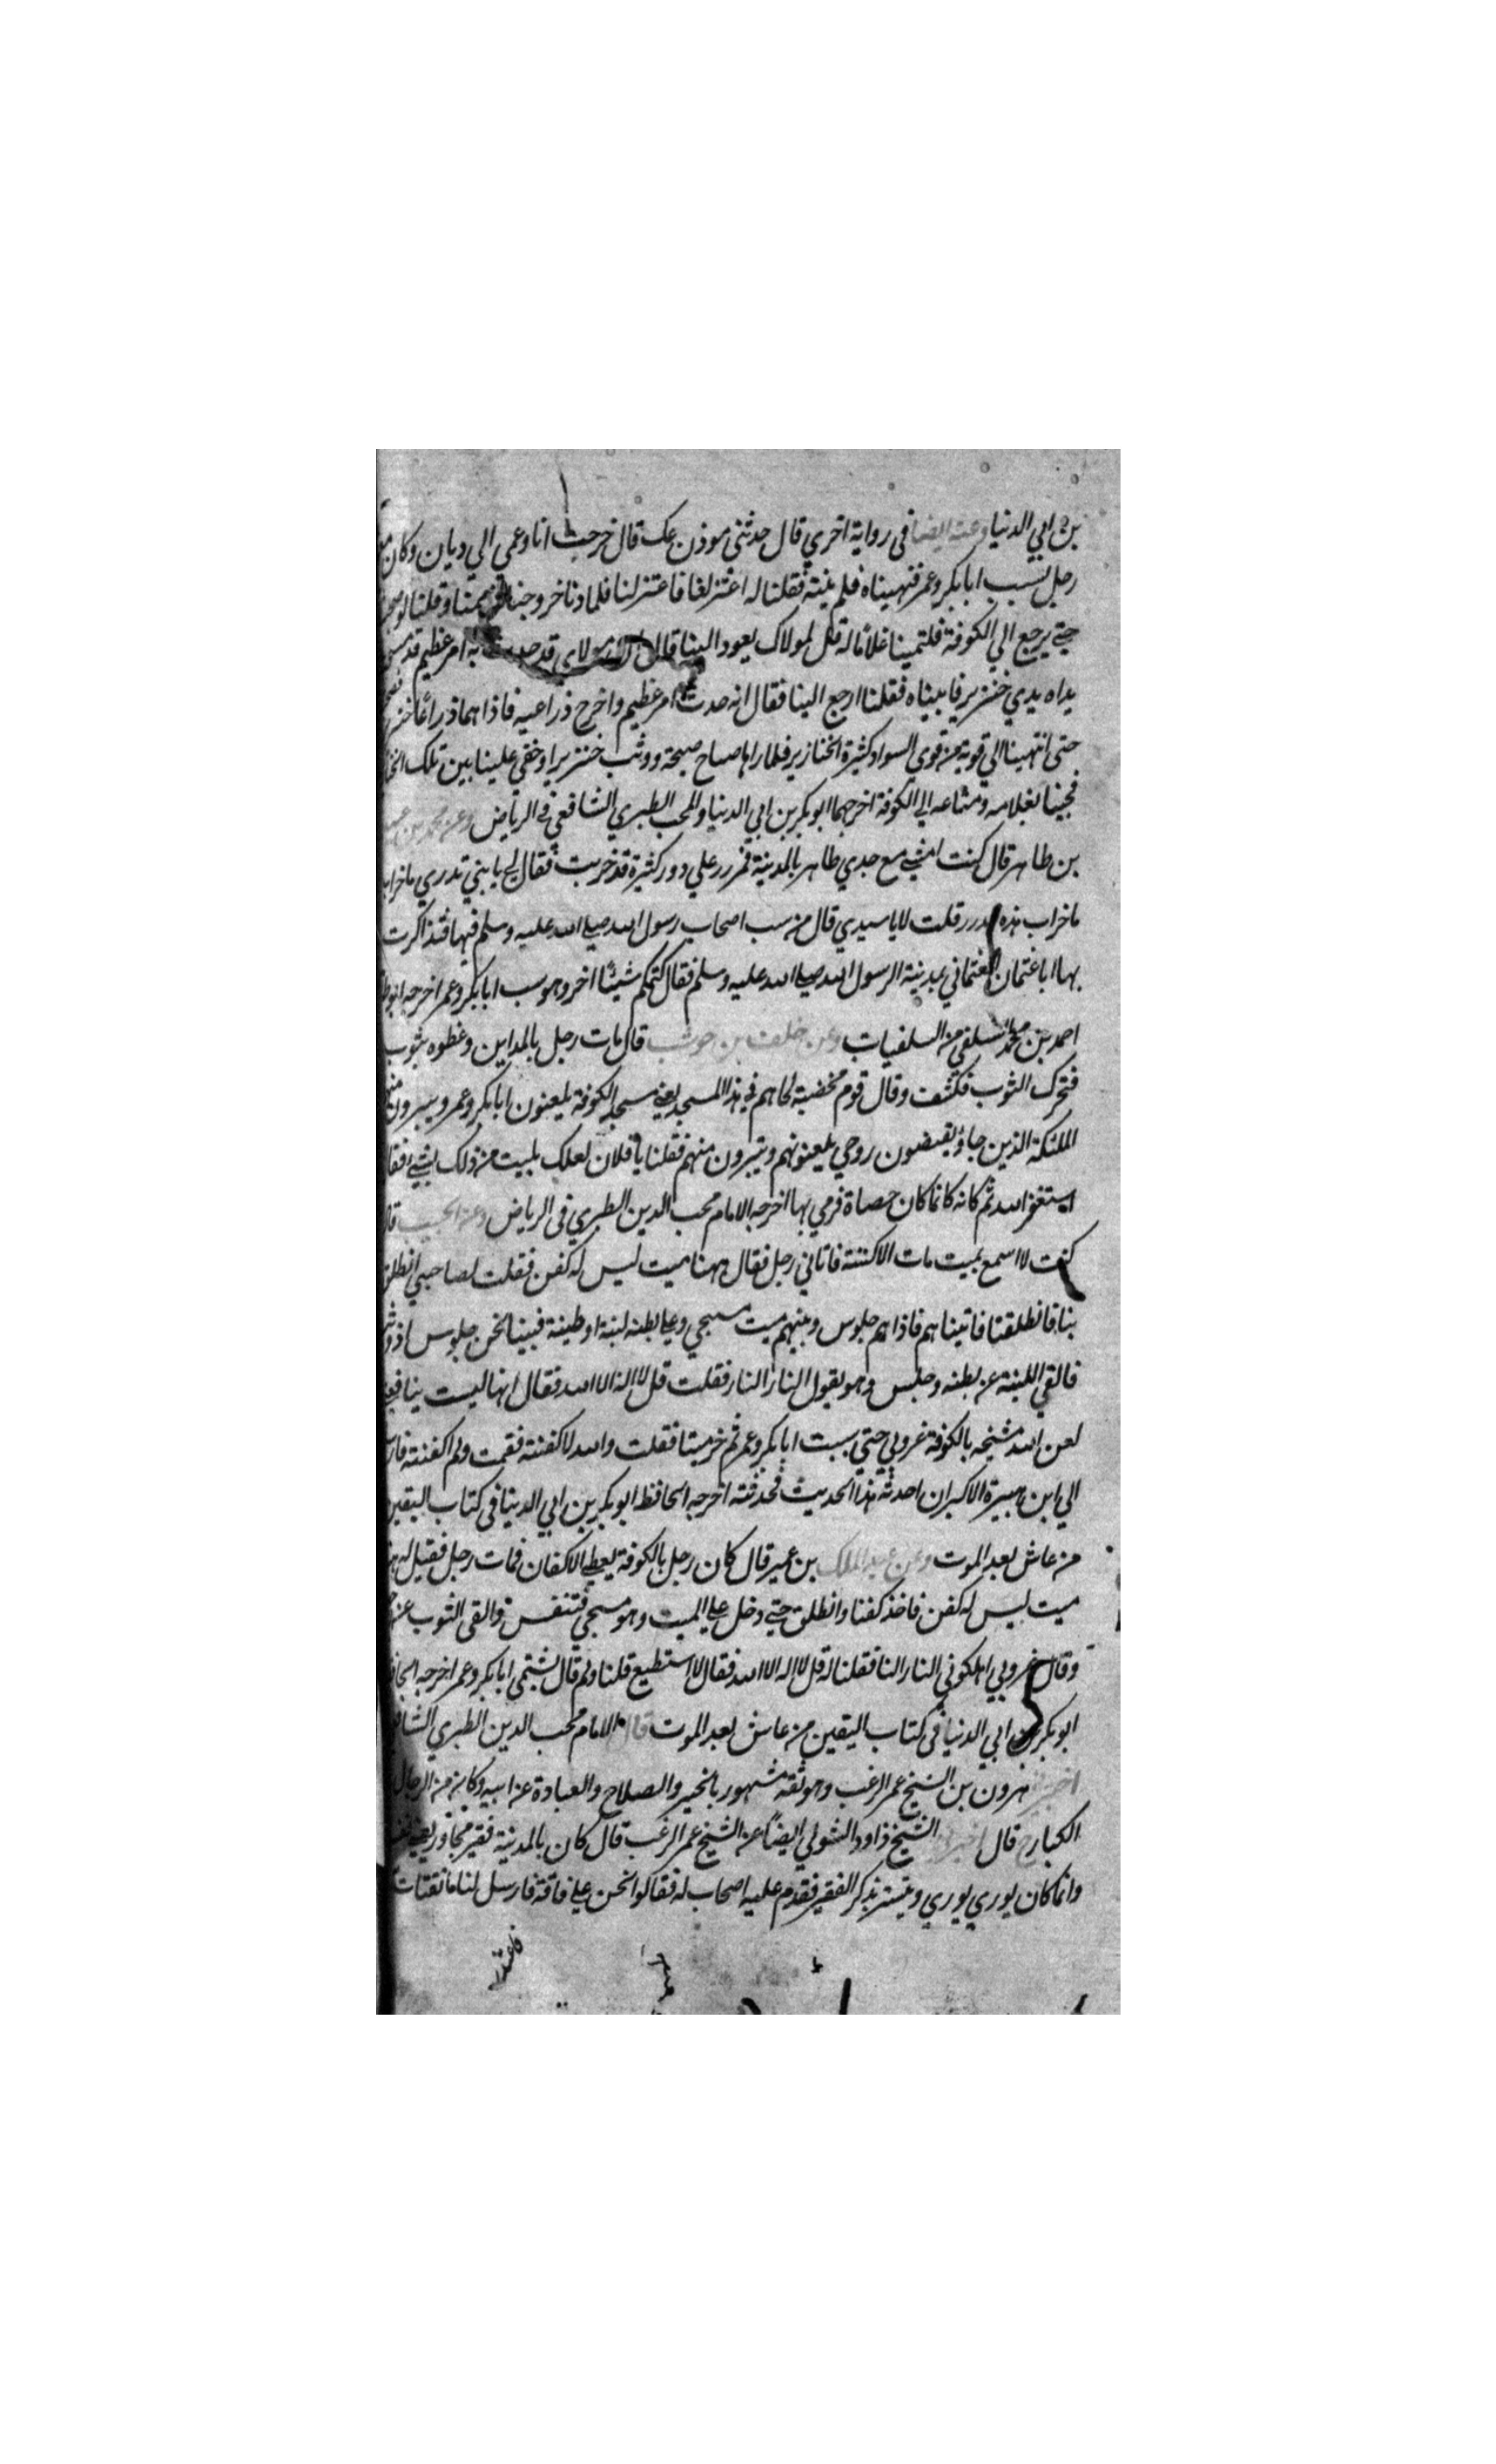 بن ابي الدنيا وعنه ايضا في رواية اخري قال حدثني موذن عك قال خرجت انا وعمي الي ديان وكان
رجل يسب ابا بكر وعمر فنهيناه فلم ينته فقلنا له اعتزلنا فاعتزلنا فلما دنا خروجنا وقلنا لو
حتي يرجع الي الكوفة فلقينا غلاما له قل لمولاك يعود الينا قال ان مولاي قد حدث به امر عظيم قد
يداه يدي خنزير فاتيناه فقلنا ارجع الينا فقال انه حدث امر عظيم واخرج ذراعيه فاذا هما ذراعا
حتى انتهينا الي قرية من قوي السواد كثيرة الخنازير فلما راها صاح صيحة ووثب خنزيرا وخفي علينا بين تلك
فجينا بغلامه ومتاعه الي الكوفة اخرجهما ابو بكر بن ابي الدنيا والمحب الطبري الشافعي في الرياض وعن محمد بن
بن طاهر قال كنت امشي مع جدي طاهر بالمدينة فمر علي دور كثيرة قد خربت فقال لي يا بني تدري ما
ما خراب هذه قلت لا يا سيدي قال من سب اصحاب رسول الله صلى الله عليه وسلم فيها فتذاكرت
بها ابا عثمان العثماني بمدينة الرسول صلى الله عليه وسلم فقال كتمكم شيئا اخر وهو سب ابا بكر وعمر اخرجه
احمد بن محمد السلفي من السلفيات وعن خلف بن حوشب قال مات رجل بالمداين وغطوه بثوب
فتحرك الثوب فكشف وقال قوم مخضبة لحاهم في هذا المسجد يعني مسجد الكوفة يلعنون ابا بكر وعمر ويتبرون
الملئكة الذين جاؤ يقبضون روحي يلعنونهم ويتبرون منهم فقلنا يا فلان لعلك بليت من ذلك بشيء
استغفر الله ثم كانه كانما كان حصاة فرمي بها اخرجه الامام محب الدين الطبري في الرياض
كنت لا اسمع بميت مات الا كفنته فاتاني رجل فقال ههنا ميت ليس له كفن فقلت لصاحبي انطلق
بنا فانطلقنا فاتيناهم فاذا هم جلوس وبينهم ميت مسجي وعلي بطنه لبنة او طينة فبينا نحن جلوس اذ
فالقي اللبنة عن بطنه وجلس وهو يقول النار النار فقلت قل لا اله الا الله فقال انها ليست
لعن الله مشيخه بالكوفة غروني حتي سببت ابا بكر وعمر ثم خر ميتا فقلت والله لا كفنته فقمت ولم اكفنته
الي ابن هبيرة الاكبر ان احدثه هذا الحديث فحدثته اخرجه الحافظ ابو بكر بن ابي الدنيا في كتاب اليقين
من عاش بعد الموت وعن عبد الملك بن عمير قال كان رجل بالكوفة يعطي الاكفان فمات رجل فقيل له
ميت ليس له كفن فاخذ كفنا وانطلق حتي دخل علي الميت وهو مسجي فتنفس والقي الثوب
وقال غروني اهلكوني النار النا فقلنا له قل لا اله الا الله فقال لا استطيع قلنا ولم قال بشتمي ابا بكر وعمر اخرجه
ابو بكر بن ابي الدنيا في كتاب اليقين من عاش بعد الموت قال الامام محب الدين الطبري
هرون بن الشيخ عمر الزغب وهو ثقة مشهور بالخير والصلاح والعبادة عن ابيه وكان من الرجال
الكبار قال الشيخ داود الشولي ايضا عن الشيخ عمر الرغب قال كان بالمدينة فقير مجاور
وانما كان يوري يوري ويتستر بذكر الفقير فقدم عليه اصحاب له فقالوا نحن علي فاقة فارسل لنا ما نقتات